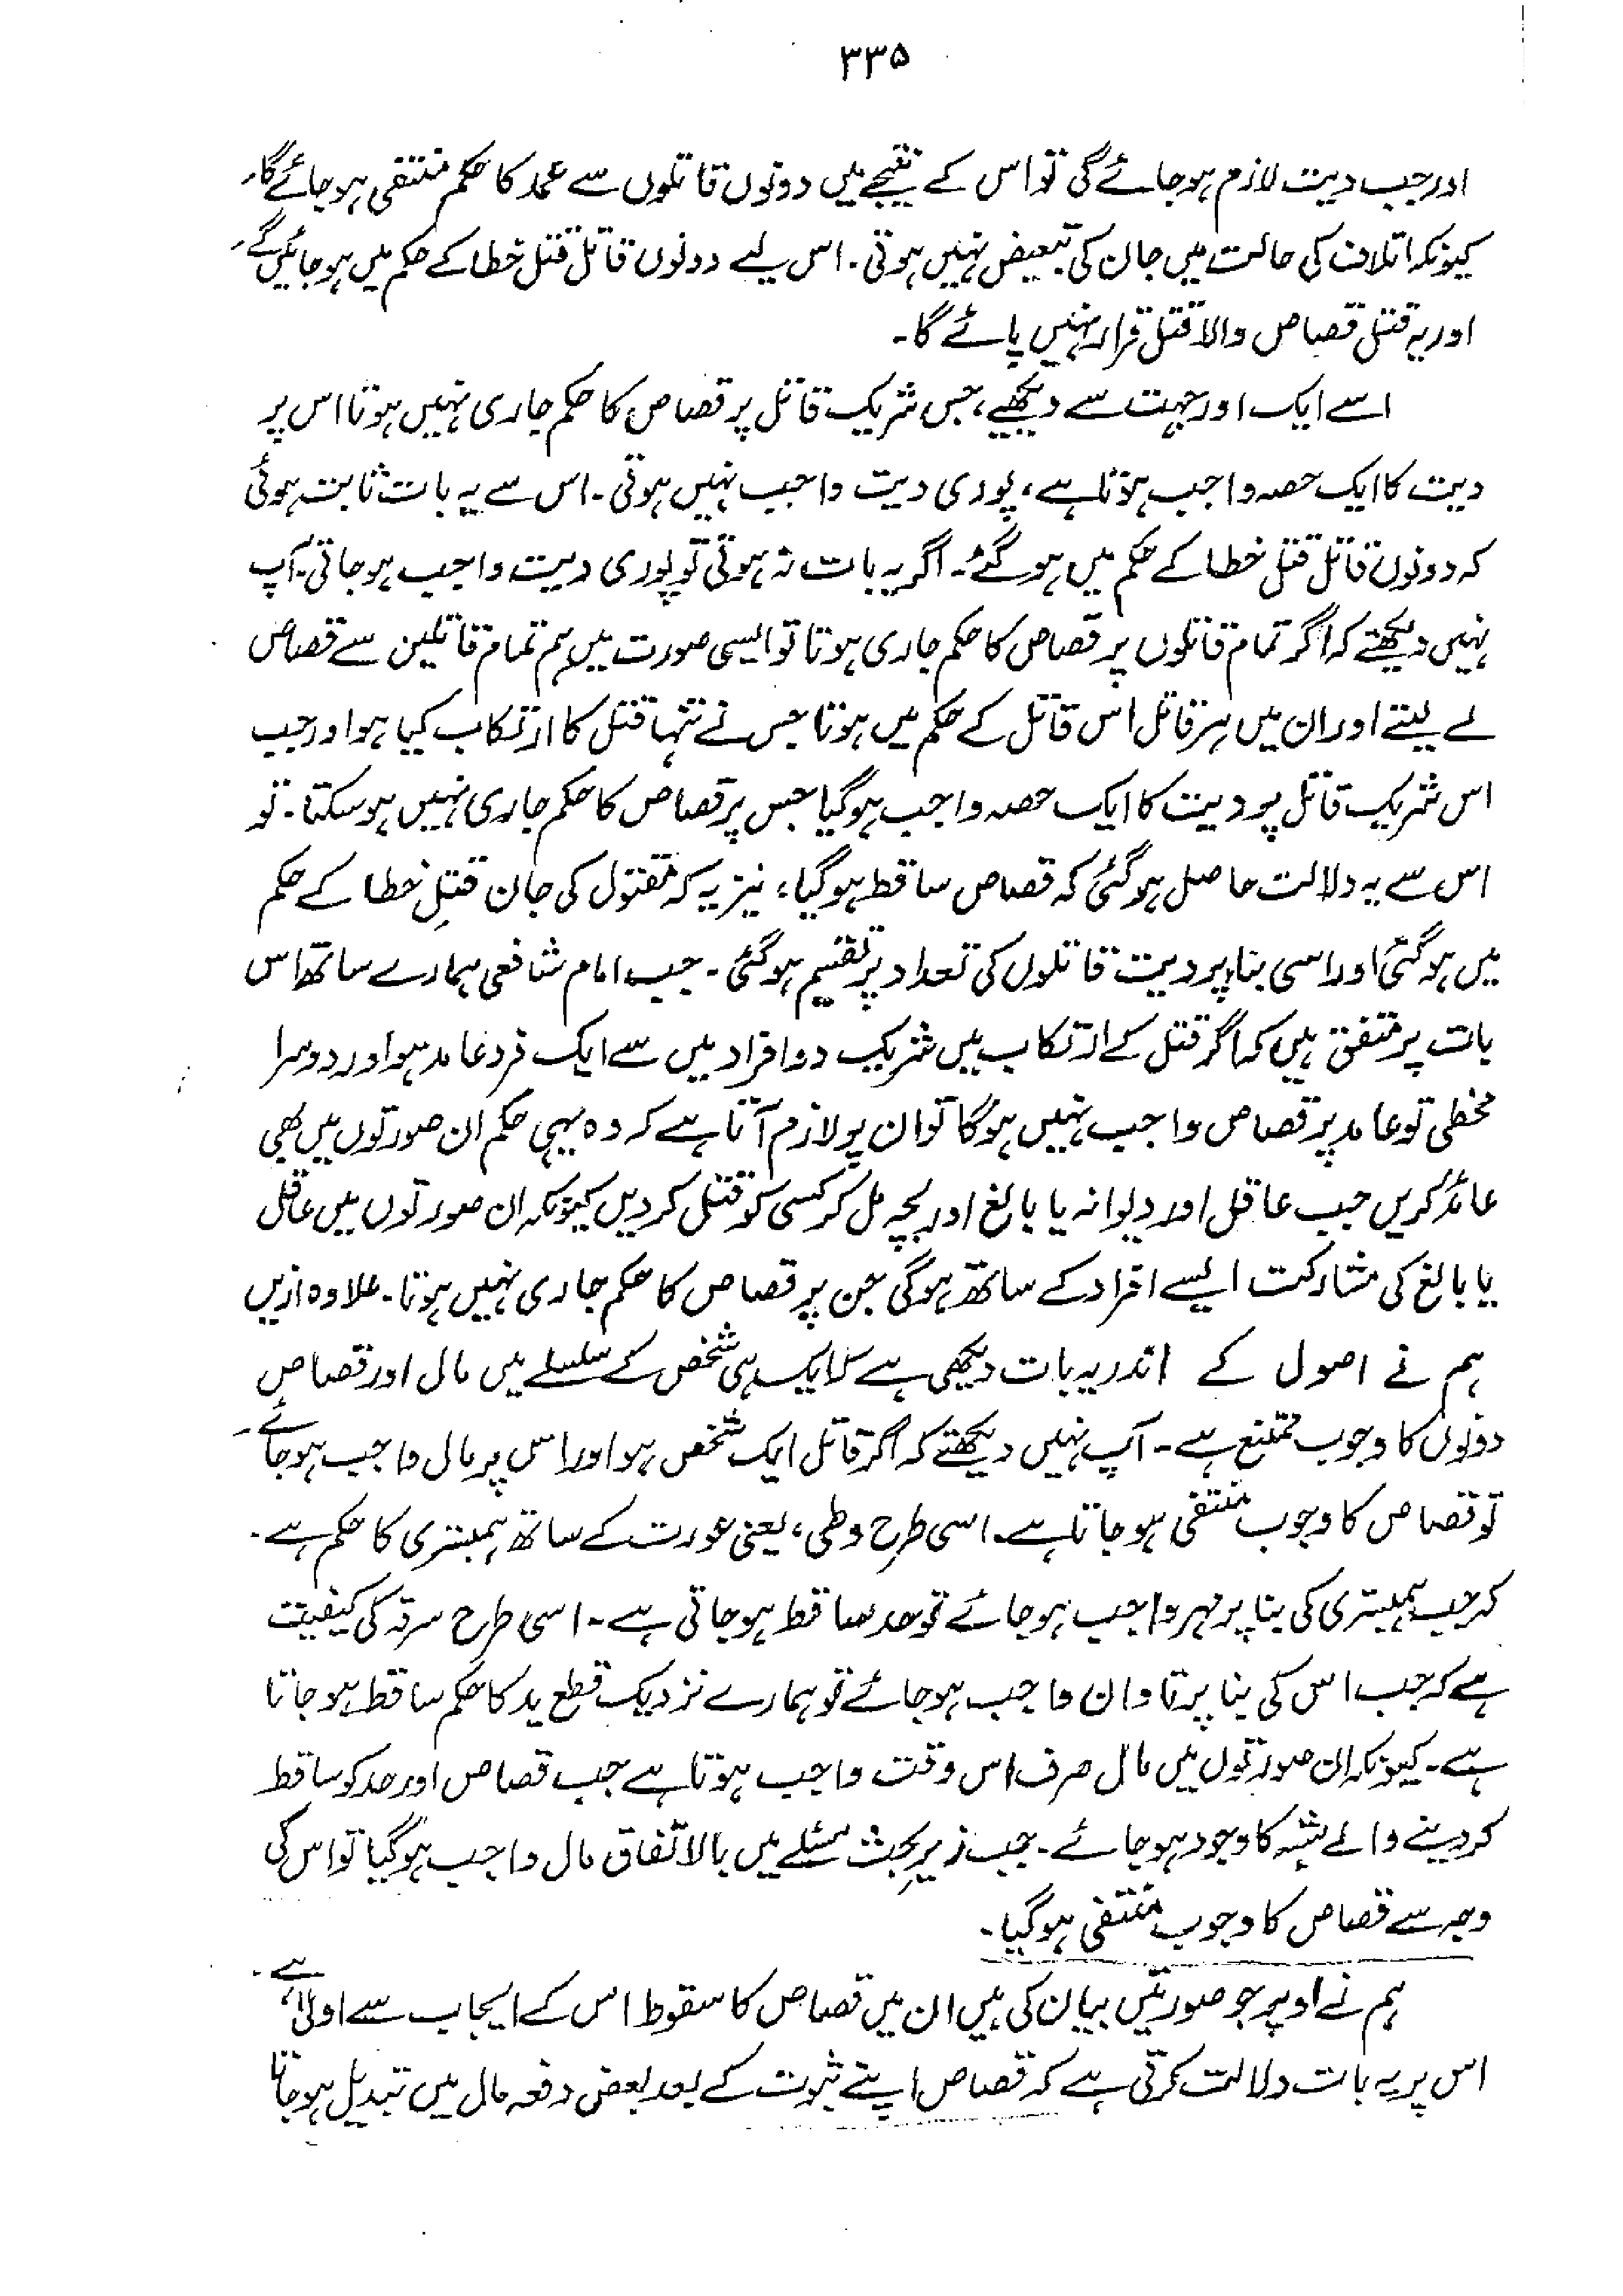 ۳۳۵
اور جب دیت لازم ہو جائے گی تو اس کے نتیجے میں دونوں قاتلوں سے عمد کا حکم منتفی ہو جائے گا،
کیونکہ اتلاف کی حالت میں جان کی تبعیض نہیں ہوتی۔ اس لیے دونوں قاتل قتل خطا کے حکم میں ہو جائیں گے،
اور یہ قتل قصاص والا قتل قرار نہیں پائے گا۔
اسے ایک اور جہت سے دیکھیے، جس شریک قاتل پر قصاص کا حکم جاری نہیں ہوتا اس پر
دیت کا ایک حصہ واجب ہوتا ہے، پوری دیت واجب نہیں ہوتی۔ اس سے یہ بات ثابت ہوئی
کہ دونوں قاتل قتل خطا کے حکم میں ہو گئے۔ اگر یہ بات نہ ہوتی تو پوری دیت واجب ہو جاتی۔ آپ
نہیں دیکھتے کہ اگر تمام قاتلوں پر قصاص کا حکم جاری ہوتا تو ایسی صورت میں ہم تمام قاتلین سے قصاص
لے لیتے اور ان میں ہر قاتل اس قاتل کے حکم میں ہوتا جس نے تنہا قتل کا ارتکاب کیا ہو اور جب
اس شریک قاتل پر دیت کا ایک حصہ واجب ہو گیا جس پر قصاص کا حکم جاری نہیں ہو سکتا۔ تو
اس سے یہ دلالت حاصل ہو گئی کہ قصاص ساقط ہو گیا، نیز یہ کہ مقتول کی جان قتلِ خطا کے حکم
میں ہو گئی اور اسی بنا پر دیت قاتلوں کی تعداد پر تقسیم ہو گئی۔ جب امام شافعی ہمارے ساتھ اس
بات پر متفق ہیں کہ اگر قتل کے ارتکاب میں شریک دو افراد میں سے ایک فرد عامد ہو اور دوسرا
مخطی تو عامد پر قصاص واجب نہیں ہوگا تو ان پر لازم آتا ہے کہ وہ یہی حکم ان صورتوں میں بھی
عائد کریں جب عاقل اور دیوانہ یا بالغ اور بچہ مل کر کسی کو قتل کر دیں کیونکہ ان صورتوں میں عاقل
یا بالغ کی مشارکت ایسے افراد کے ساتھ ہوگی جن پر قصاص کا حکم جاری نہیں ہوتا۔ علاوہ ازیں
ہم نے اصول کے اندر یہ بات دیکھی ہے کہ ایک ہی شخص کے سلسلے میں مال اور قصاص
دونوں کا وجوب ممتنع ہے۔ آپ نہیں دیکھتے کہ اگر قاتل ایک شخص ہو اور اس پر مال واجب ہو جائے
تو قصاص کا وجوب منتفی ہو جاتا ہے۔ اسی طرح وطی، یعنی عورت کے ساتھ ہمبستری کا حکم ہے۔
کہ جب ہمبستری کی بنا پر مہر واجب ہو جائے تو حد ساقط ہو جاتی ہے۔ اسی طرح سرقہ کی کیفیت
ہے کہ جب اس کی بنا پر تاوان واجب ہو جائے تو ہمارے نزدیک قطع ید کا حکم ساقط ہو جاتا
ہے۔ کیونکہ ان صورتوں میں مال صرف اس وقت واجب ہوتا ہے جب قصاص اور حد کو ساقط
کر دینے والے شبہ کا وجود ہو جائے۔ جب زیرِ بحث مسئلے میں بالاتفاق مال واجب ہو گیا تو اس کی
وجہ سے قصاص کا وجوب منتفی ہو گیا۔
ہم نے اوپر جو صورتیں بیان کی ہیں ان میں قصاص کا سقوط اس کے ایجاب سے اولیٰ ہے۔
اس پر یہ بات دلالت کرتی ہے کہ قصاص اپنے ثبوت کے بعد بعض دفعہ مال میں تبدیل ہو جاتا